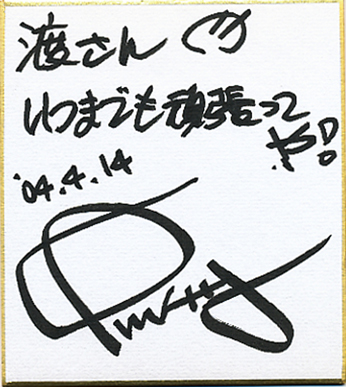 渡さん
いつまでも頑張って
'04.4.14